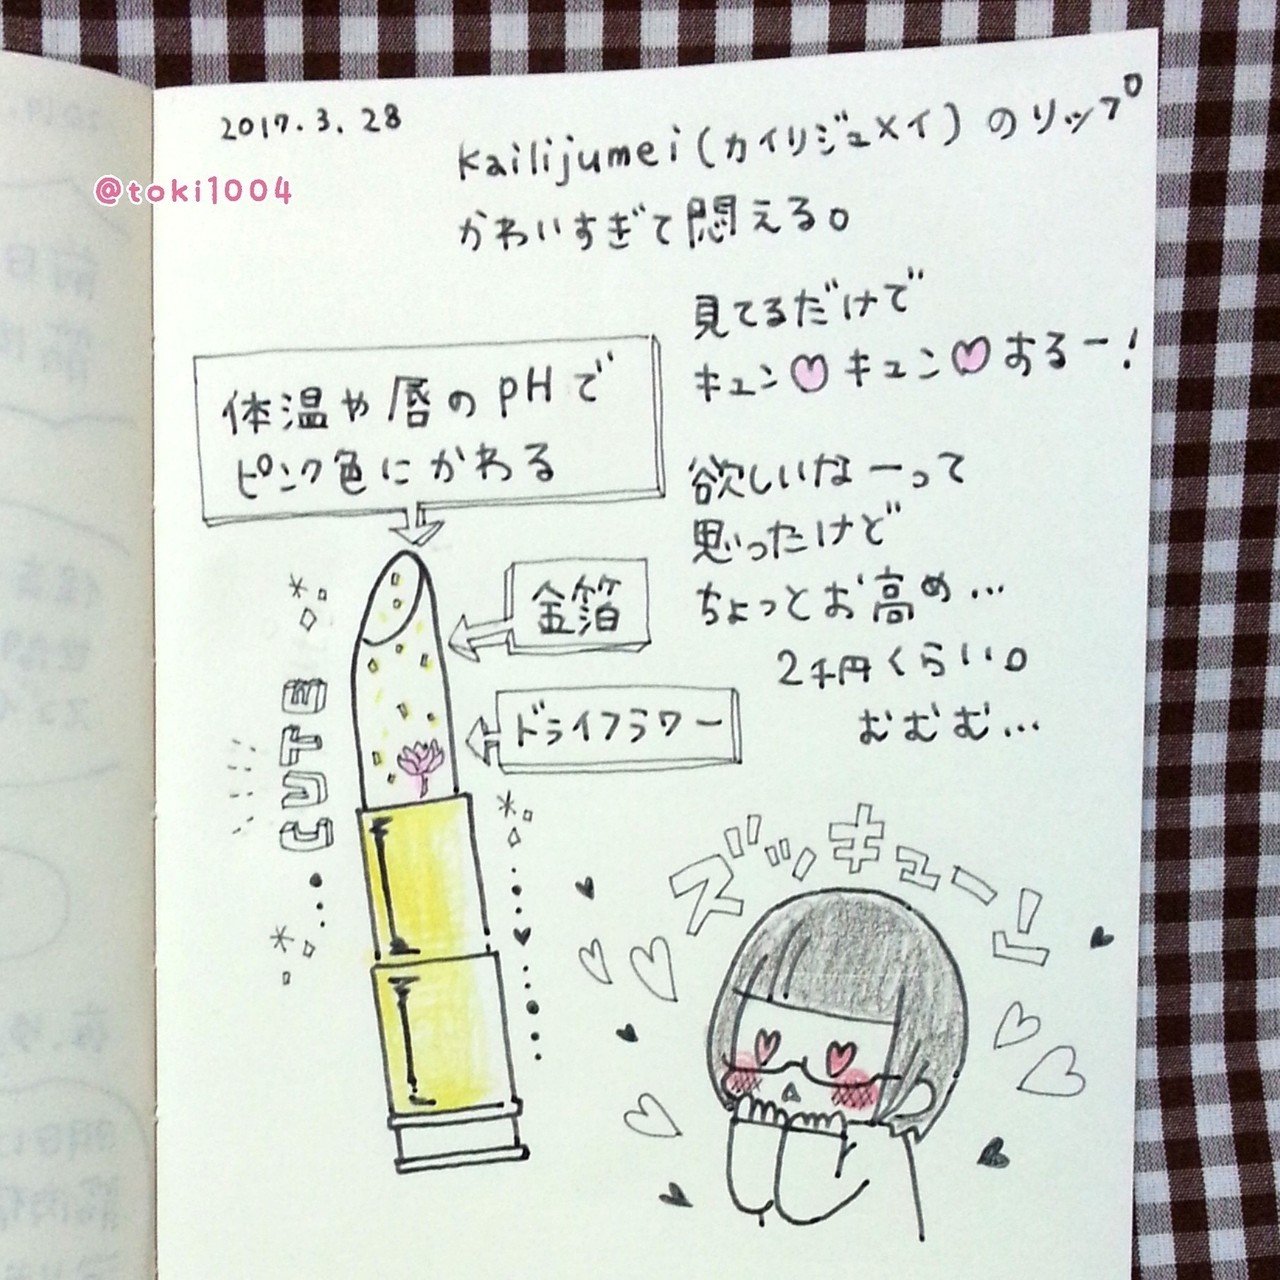 2017.3.28
@toki1004
kailijumei(カイリジュメイ)のリップ
かわいすぎて悶える。
見てるだけで
キュン♡キュン♡あるー!
体温や唇のpHで
ピンク色にかわる
欲しいなーって
思ったけど
ちょっとお高め...
2千円くらい。
むむむ...
金箔
ドライフラワー
CUTE
ズッキューン!